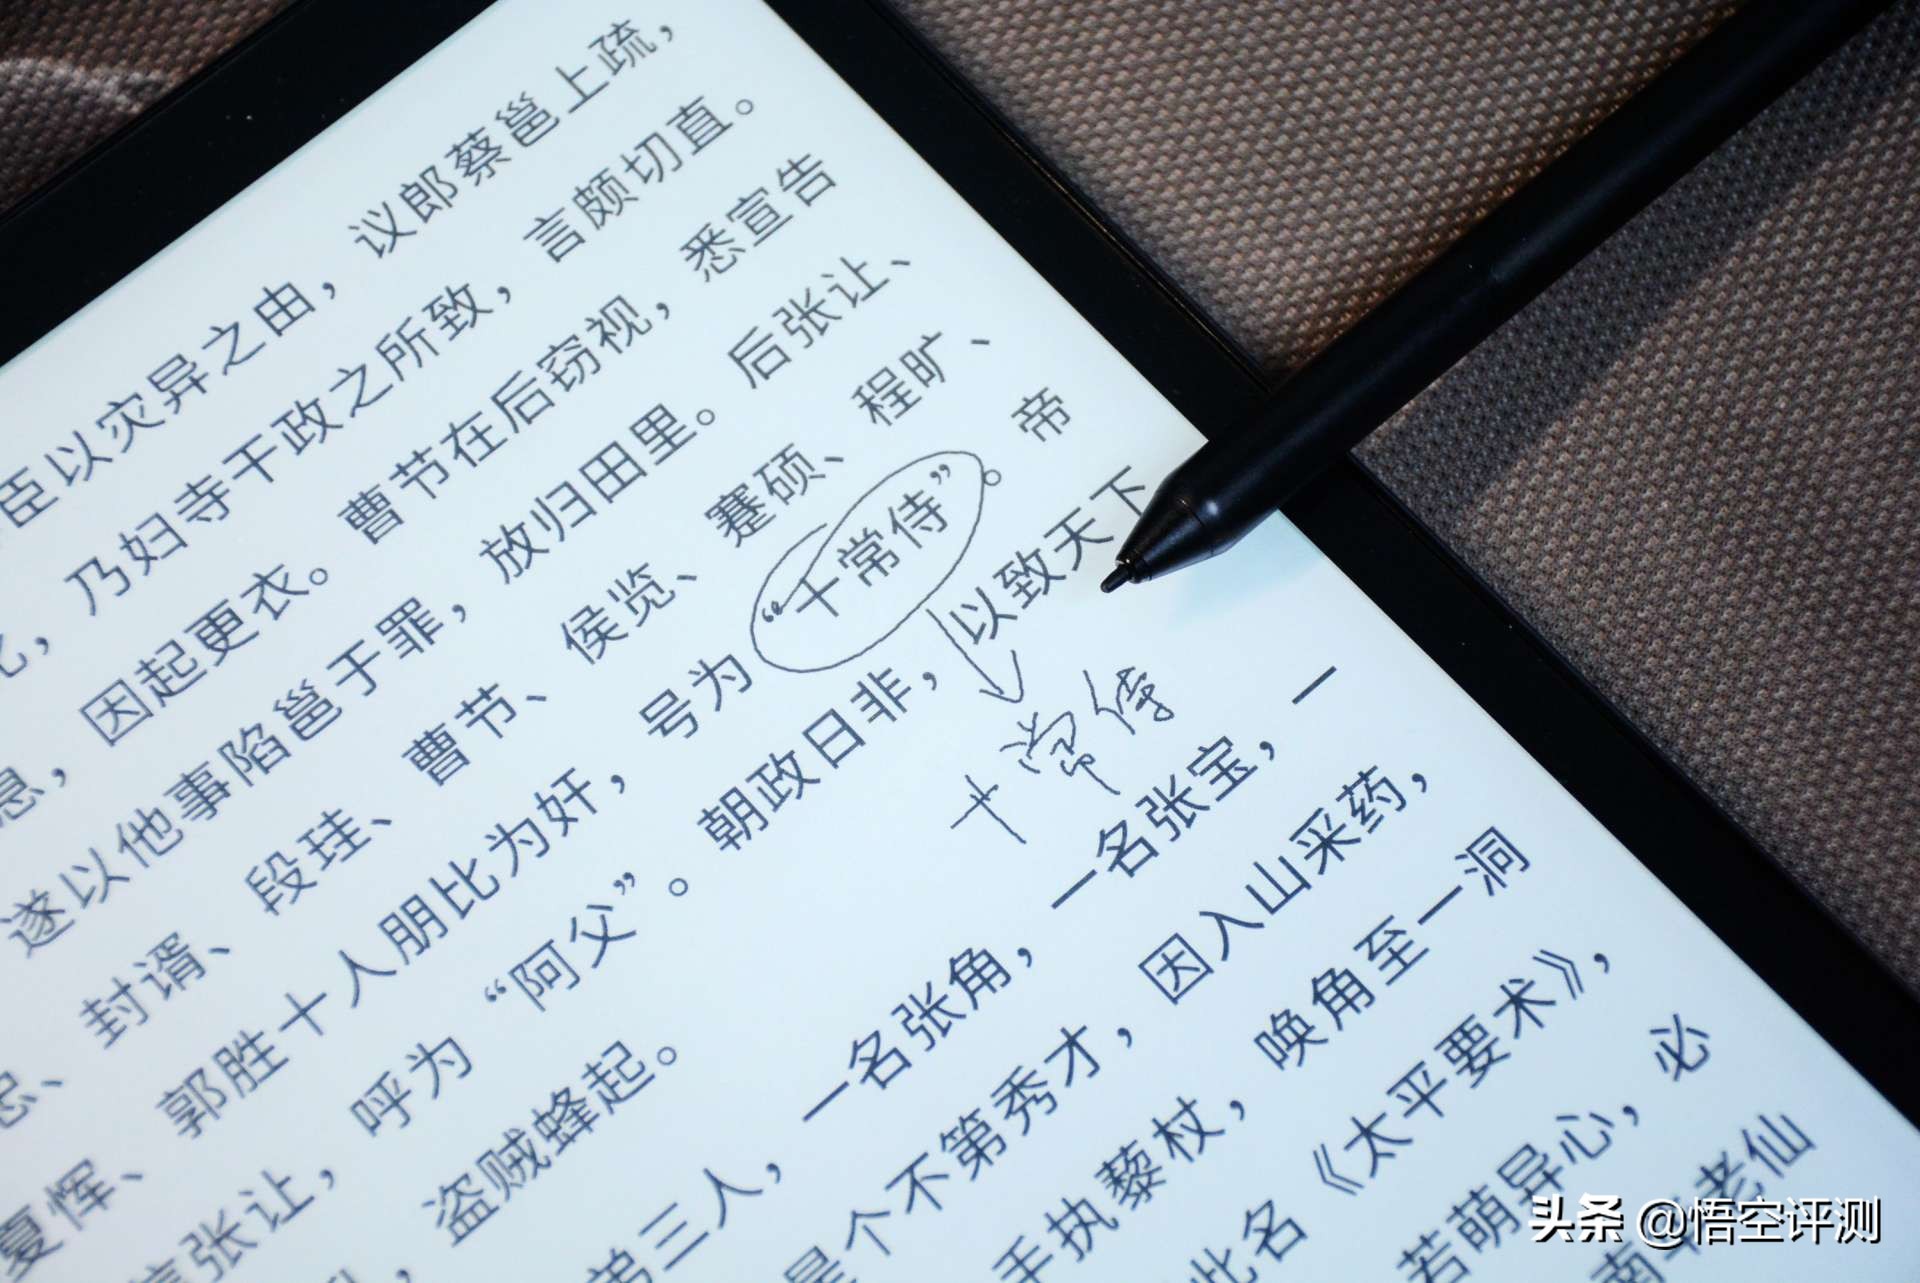 臣以灾异之由，议郎蔡邕上疏，
，乃妇寺干政之所致，言颇切直。
息，因起更衣。曹节在后窃视，悉宣告
遂以他事陷邕于罪，放归田里。后张让、
忠、封谞、段珪、曹节、侯览、蹇硕、程旷、
夏恽、郭胜十人朋比为奸，号为“十常侍”。帝
信张让，呼为“阿父”。朝政日非，以致天下
，盗贼蜂起。
十常侍
弟三人，一名张角，一名张宝，一
是个不第秀才，因入山采药，
手执藜杖，唤角至一洞
此名《太平要术》，
若萌异心，必
南华老仙
头条 @悟空评测